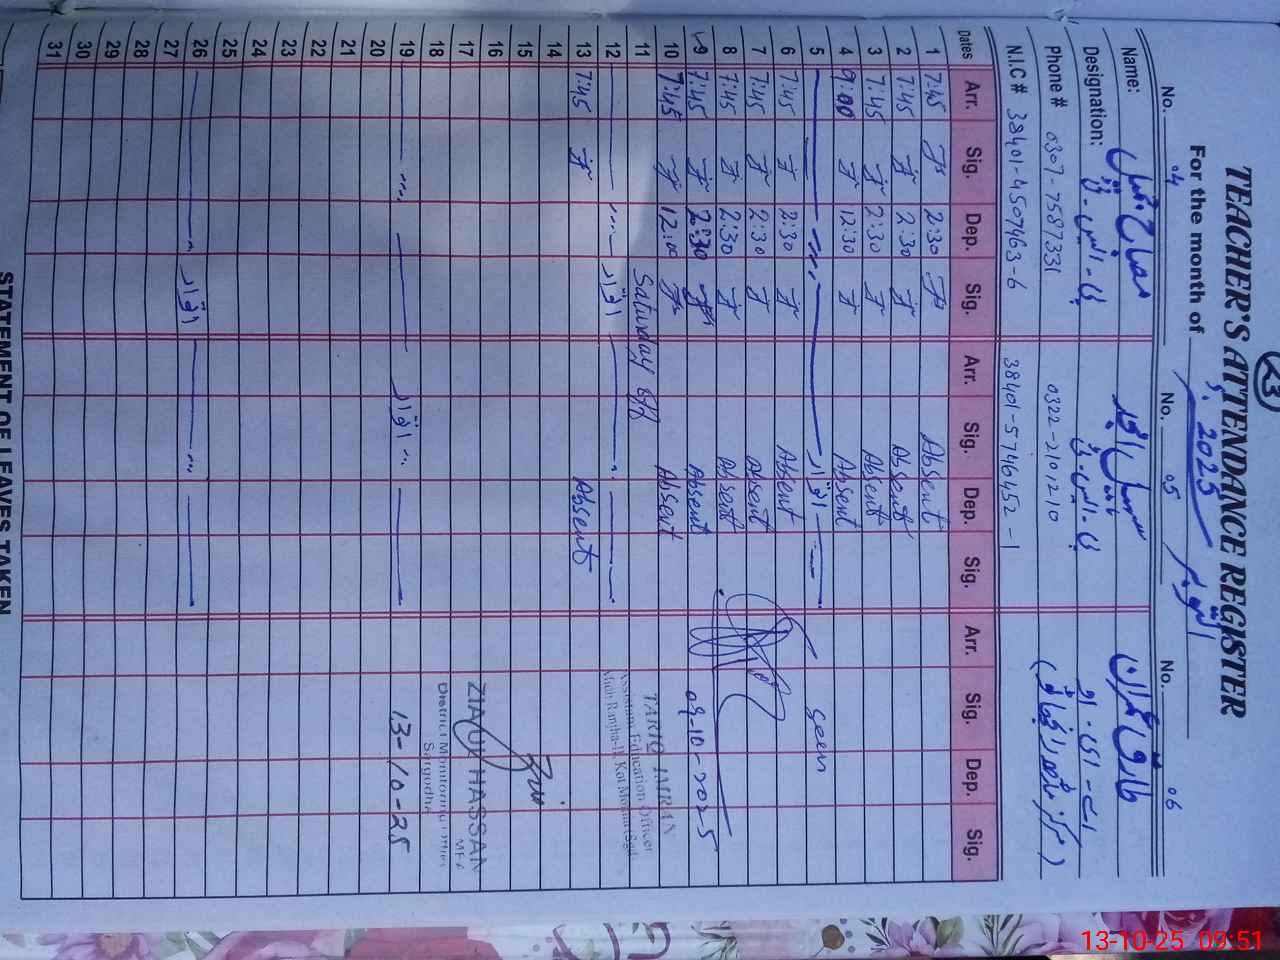 23
TEACHER'S ATTENDANCE REGISTER
For the month of 2025 اکتوبر
No. 04 No. 05 No. 06
Name: طارق عمران
Designation: پی۔ ایس۔ ٹی پی۔ ایس۔ ٹی اے۔ ای۔ او
Phone # 0307-7587331 0322-2101210
N.I.C # 38401-4507463-6 38401-5746452-1
Dates Arr. Sig. Dep. Sig. Arr. Sig. Dep. Sig. Arr. Sig. Dep. Sig.
1 7:45 2:30 Absent
2 7:45 2:30 Absent
3 7:45 2:30 Absent
4 9:00 12:30 Absent
5 اتوار seen
6 7:45 2:30 Absent
7 7:45 2:30 Absent
8 7:45 2:30 Absent
9 7:45 2:30 Absent 09-10-2025
10 7:45 12:00 Absent
11 Saturday off TARIQ IMRAN
Assistant Education Officer
12 اتوار
13 7:45 Absent
14
15
16 ZIA UL HASSAN
17 MEA
District Monitoring Officer
18 Sargodha
19 اتوار 13-10-25
20
21
22
23
24
25
26 اتوار
27
28
29
30
31
STATEMENT OF LEAVES TAKEN
13-10-25 09:51